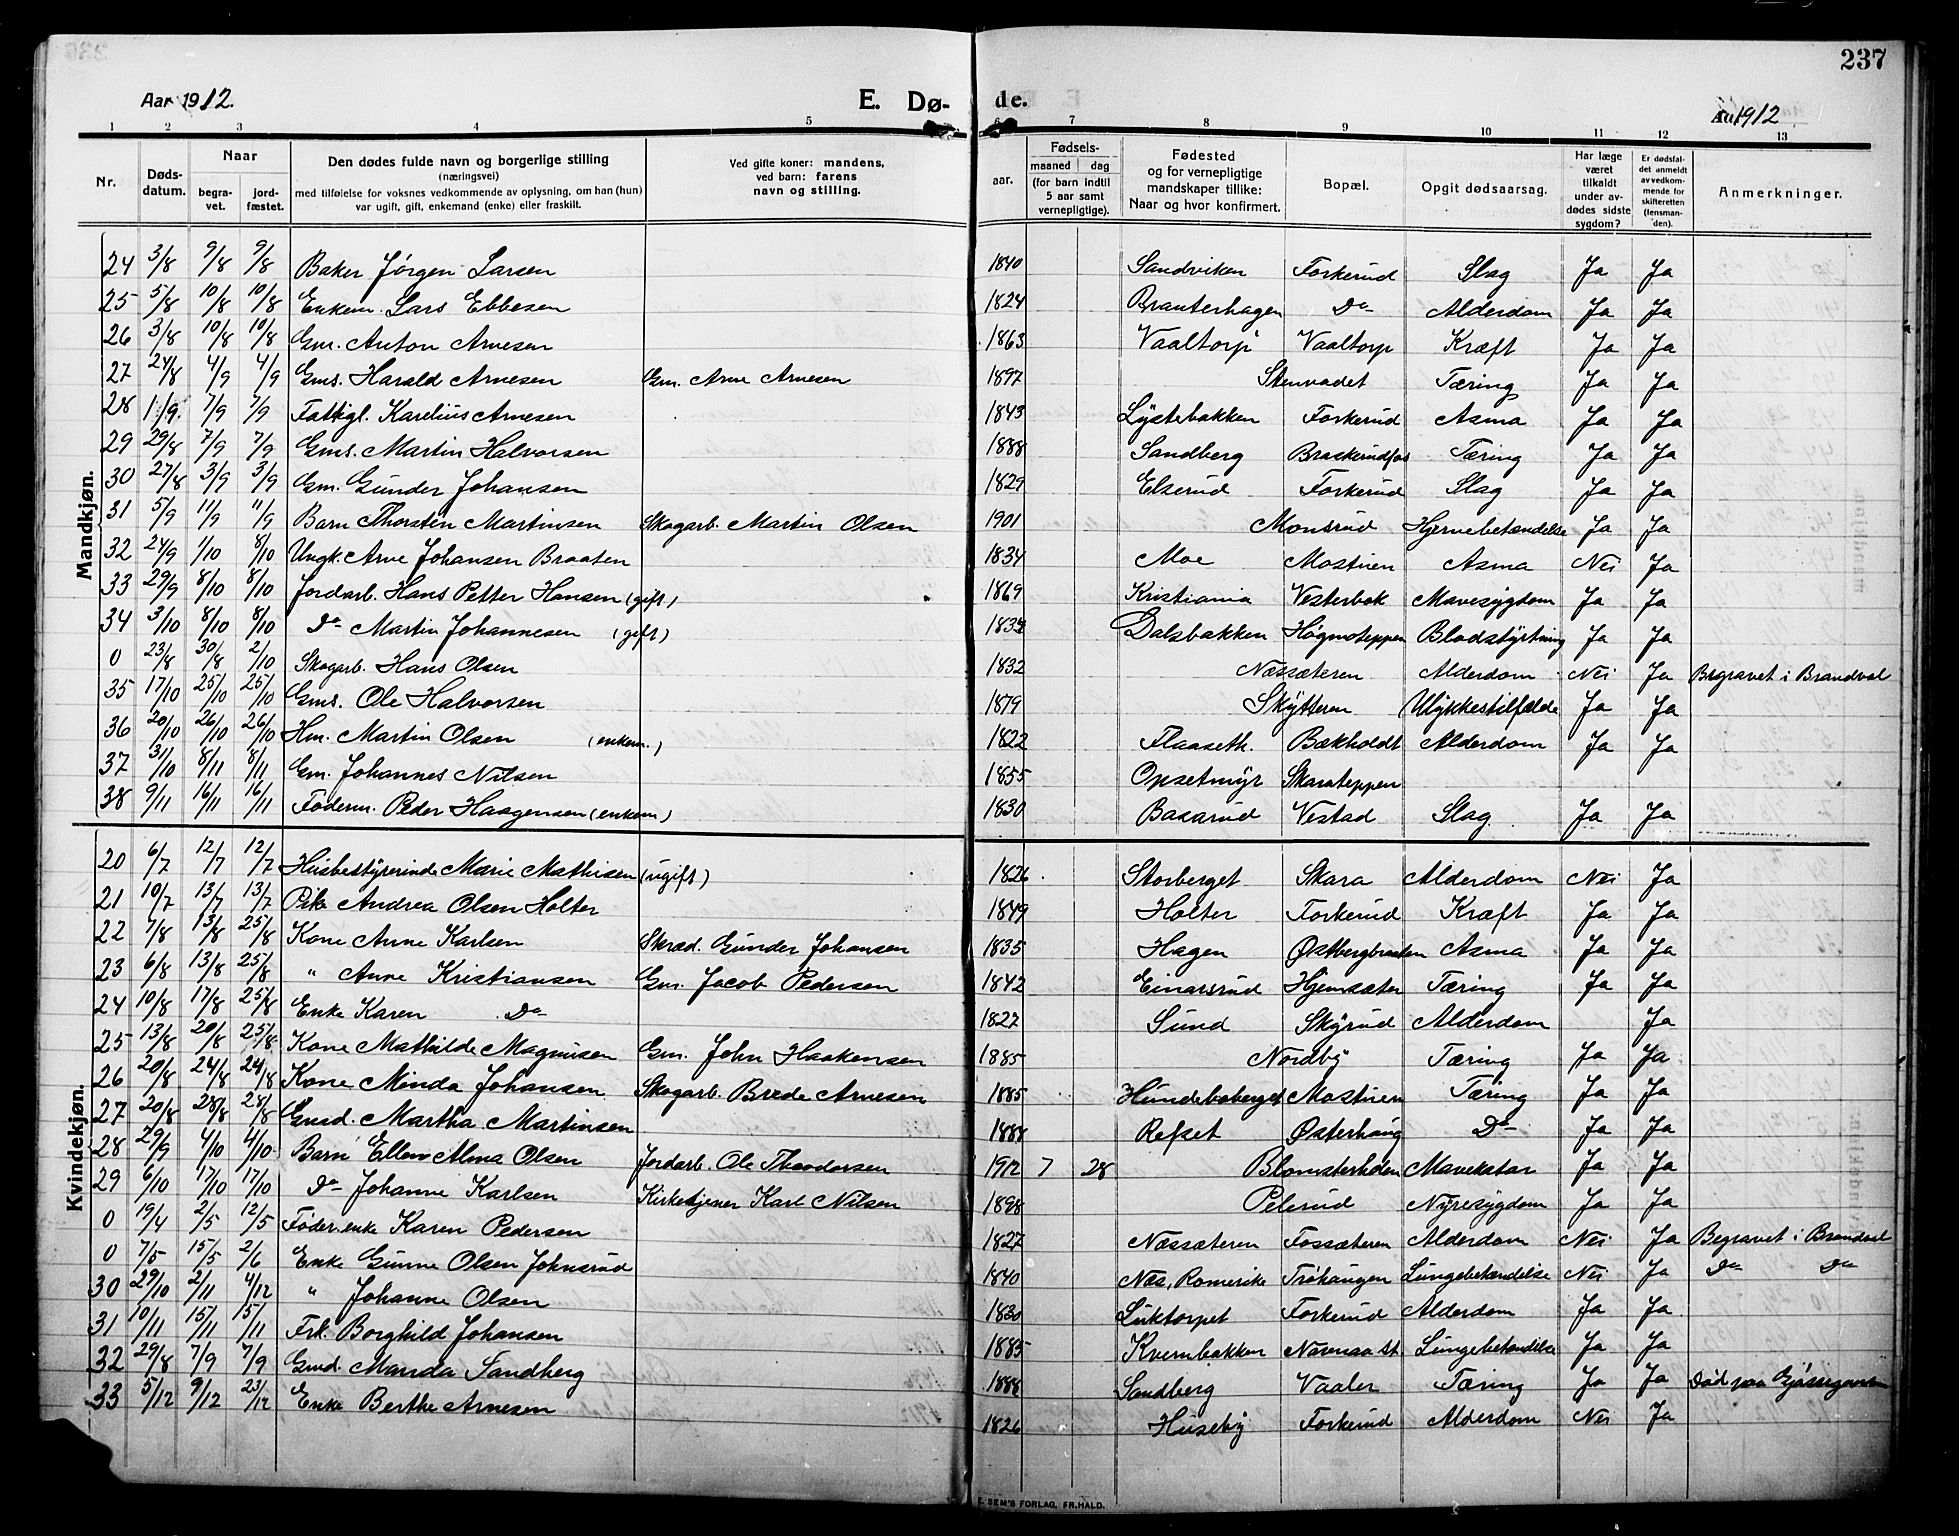 237
Aar 1912.
E. Dø- de.
Aar 1912
1 2 3 4 5 6 7 8 9 10 11 12 13
Nr.
Døds-
datum.
Naar
begra-
vet.
jord-
fæstet.
Den dødes fulde navn og borgerlige stilling
(næringsvei)
med tilføielse for voksnes vedkommende av oplysning, om han (hun)
var ugift, gift, enkemand (enke) eller fraskilt.
Ved gifte koner: mandens,
ved barn: farens
navn og stilling.
aar.
Fødsels-
maaned dag
(for barn indtil
5 aar samt
vernepligtige).
Fødested
og for vernepligtige
mandskaper tillike:
Naar og hvor konfirmert.
Bopæl.
Opgit dødsaarsag.
Har læge
været
tilkaldt
under av-
dødes sidste
sygdom?
Er dødsfal-
det anmeldt
av vedkom-
mende for
skifteretten
(lensman-
den).
Anmerkninger.
Mandkjøn.
24 3/8 9/8 9/8 Baker Jørgen Larsen 1840 Sandviken Forkerud Slag Ja Ja
25 5/8 10/8 10/8 Enkem. Lars Ebbesen 1824 Brauterhagen Do Alderdom Ja Ja
26 3/8 10/8 10/8 Gm. Anton Arnesen 1863 Vaaltorp Vaaltorp Kræft Ja Ja
27 24/8 4/9 4/9 Gms. Harald Arnesen Gm. Arne Arnesen 1897 Stenvadet Tæring Ja Ja
28 1/9 7/9 7/9 Fattigl. Karelius Arnesen 1843 Lystebakken Forkerud Asma Ja Ja
29 29/8 7/9 7/9 Gms. Martin Halvorsen 1888 Sandberg Braskerudfos Tæring Ja Ja
30 27/8 3/9 3/9 Gm. Gunder Johansen 1829 Elserud Forkerud Slag Ja Ja
31 5/9 11/9 11/9 Barn Thorstin Martinsen Skogarb. Martin Olsen 1901 Monsrud Hjernebetændelse Ja Ja
32 24/9 1/10 8/10 Ungk. Arne Johansen Braaten 1834 Moe Mostuen Asma Nei Ja
33 29/9 8/10 8/10 Jordarb. Hans Petter Hansen (gift) 1869 Kristiania Vesterbæk Mavesygdom Ja Ja
34 3/10 8/10 8/10 Do Martin Johannesen (gift) 1834 Dalsbakken Høgmoteppen Blodstyrtning Ja Ja
0 23/8 30/8 2/10 Skogarb. Hans Olsen 1832 Næssæteren Alderdom Nei Ja Begravet i Brandval
35 17/10 25/10 25/10 Gms. Ole Halvorsen 1879 Skytteren Ulykkestilfælde Ja Ja
36 20/10 26/10 26/10 Hm. Martin Olsen (enkem.) 1822 Flaaseth. Bækholdt Alderdom Ja Ja
37 31/10 8/11 8/11 Gm. Johannes Nilsen 1855 Opsetmyr Skarateppen
38 9/11 16/11 16/11 Føderm. Peder Haagensen (enkem) 1830 Basarud Vestad Slag Ja Ja
Kvindekjøn.
20 6/7 12/7 12/7 Husbestyrerinde Marie Mathisen (ugift) 1826 Storberget Skara Alderdom Nei Ja
21 10/7 13/7 13/7 Pike Andrea Olsen Holter 1849 Holter Forkerud Kræft Ja Ja
22 7/8 13/8 25/8 Kone Anne Karlsen Skræd. Gunder Johansen 1835 Hagen Østbergbraaten Asma Ja Ja
23 6/8 13/8 25/8 " Anne Kristiansen Gm. Jacob Pedersen 1842 Einarsrud Hjemsæter Tæring Ja Ja
24 10/8 17/8 25/8 Enke Karen Do 1827 Sund Skyrud Alderdom Ja
25 13/8 20/8 25/8 Kone Mathilde Magnusen Gm. John Haakensen 1885 Nordby Tæring Ja Ja
26 20/8 24/8 24/8 Kone Minda Johansen Skogarb. Brede Arnesen 1885 Hundeboberget Mostuen Tæring Ja Ja
27 20/8 28/8 28/8 Gmd. Martha Martinsen 1888 Refset Østerhaug Do Ja Ja
28 29/9 4/10 4/10 Barn Ellen Alma Olsen Jordarb. Ole Theodorsen 1912 7 28 Blomsterheden Mavekatar Ja Ja
29 6/10 17/10 17/10 Do Johanne Karlsen Kirketjener Karl Nilsen 1898 Pelerud Nyresygdom Ja Ja
0 19/4 2/5 12/5 Føder.enke Karen Pedersen 1827 Næssæteren Fossæteren Alderdom Nei Ja Begravet i Brandval
0 7/5 15/5 2/6 Enke Gunne Olsen Johnsrud 1840 Næs, Romerike Trøhaugen Lungebetændelse Nei Ja Do Do
30 29/10 2/11 4/12 " Johanne Olsen 1830 Luktorpet Forkerud Alderdom Ja Ja
31 10/11 15/11 15/11 Frk. Borghild Johansen 1885 Kvernbakken Navnaa st. Lungebetændelse Ja Ja
32 29/8 7/9 7/9 Gmd. Manda Sandberg 1888 Sandberg Vaaler Tæring Ja Ja Død paa
33 5/12 9/12 23/12 Enke Berthe Arnesen 1826 Huseby Forkerud Alderdom Nei Ja
SEM'S FORLAG, FR.HALD.